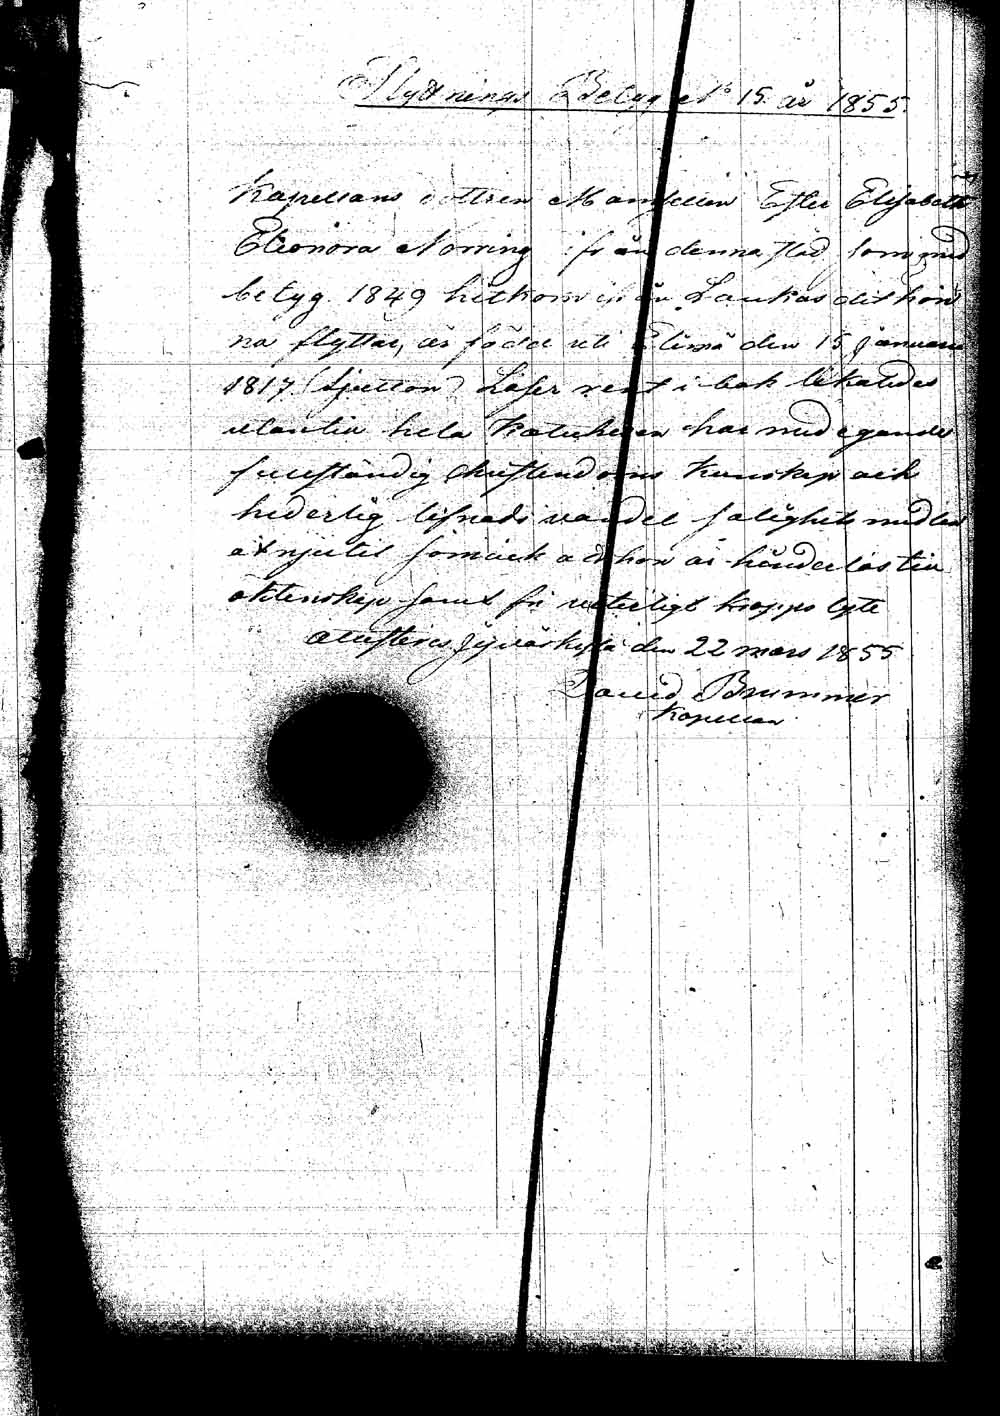 Flyttnings Betyg No 15. år 1855.
Kapellans dottren Mamsellen Ester Elisabeth
Eleonora Norring ifrån denna stad som med
betyg 1849 hitkom ifrån Laukas dit hon
nu flyttar, är född uti Elimä den 15 januari
1817 (Sjutton) Läser rent i bok likaledes
utantill hela Katekesen har med egande
fullständig Christendoms Kunskap och
hederlig lefnads vandel salighets medlen
åtnjutit somt och at hon är hinderlös till
äktenskap samt fri veterligt kropps lyte
Attesteras Jyväskylä den 22 mars 1855
David Brummer
Kapellan